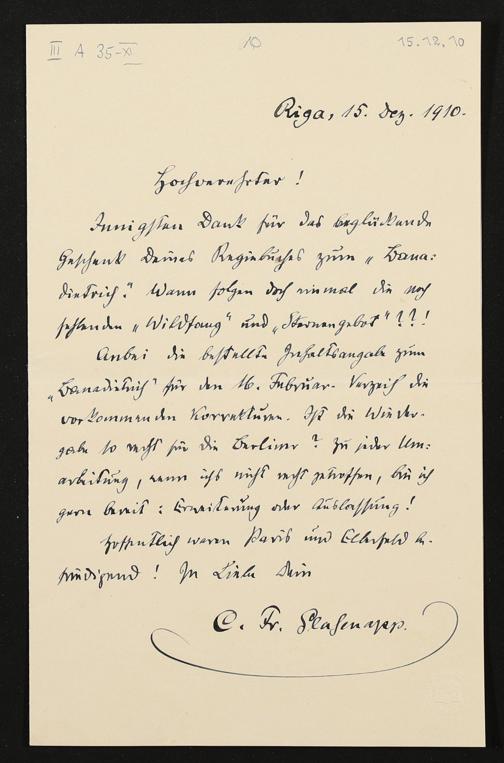 III A 35-XI
10
15.12.10
Riga, 15. Dez. 1910.
Hochverehrter!
Innigsten Dank für das beglückende
Geschenk Deines Regiebuches zum „Bana:
dietrich". Wann folgen doch einmal die noch
fehlenden „Wildfang" und „Sternengebot"??!
Anbei die bestellte Inhaltsangabe zum
„Banadietrich" für den 16. Februar. Verzeih die
vorkommenden Korrekturen. Ist die Wieder-
gabe so recht für die Berliner? Zu jeder Um:
arbeitung, wenn ich's nicht recht getroffen, bin ich
gern bereit: Erweiterung oder Auslassung!
Hoffentlich waren Paris und Elberfeld be-
friedigend! In Liebe Dein
C. Fr. Glasenapp.